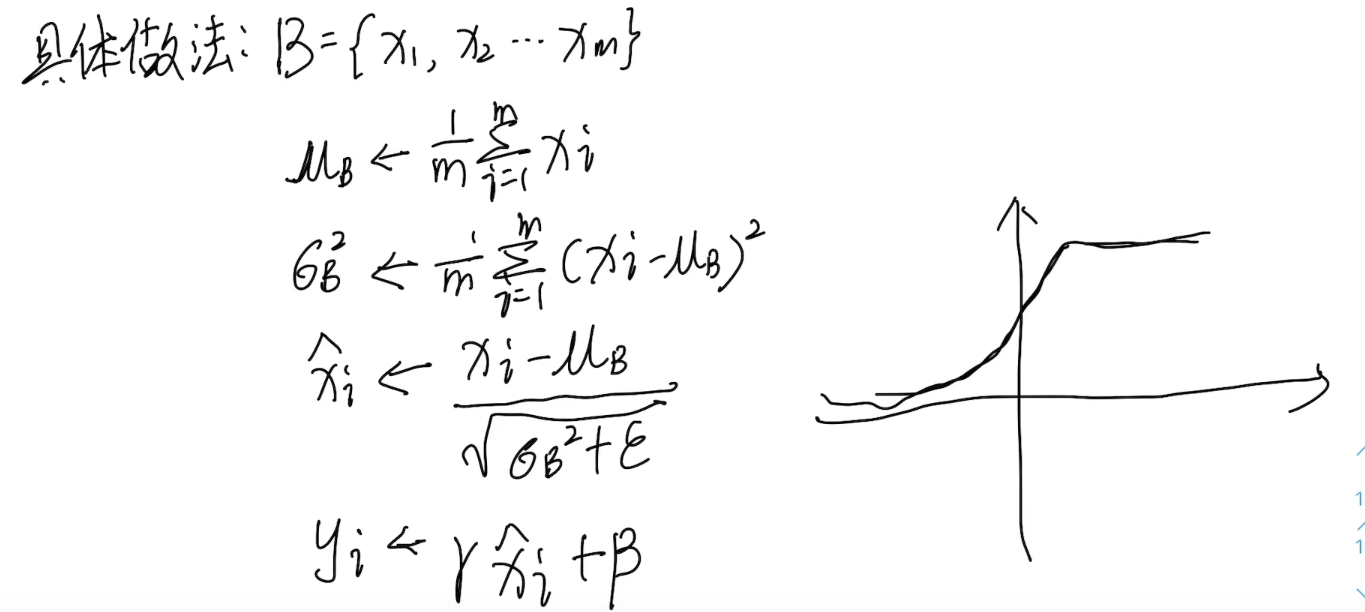 具体做法: B={x₁, x₂ ⋯ xₘ}
μ_B ← 1/m ∑_{i=1}^{m} xᵢ
σ_B² ← 1/m ∑_{i=1}^{m} (xᵢ-μ_B)²
x̂ᵢ ← (xᵢ-μ_B)/√(σ_B²+ε)
yᵢ ← γ x̂ᵢ +β
1
1